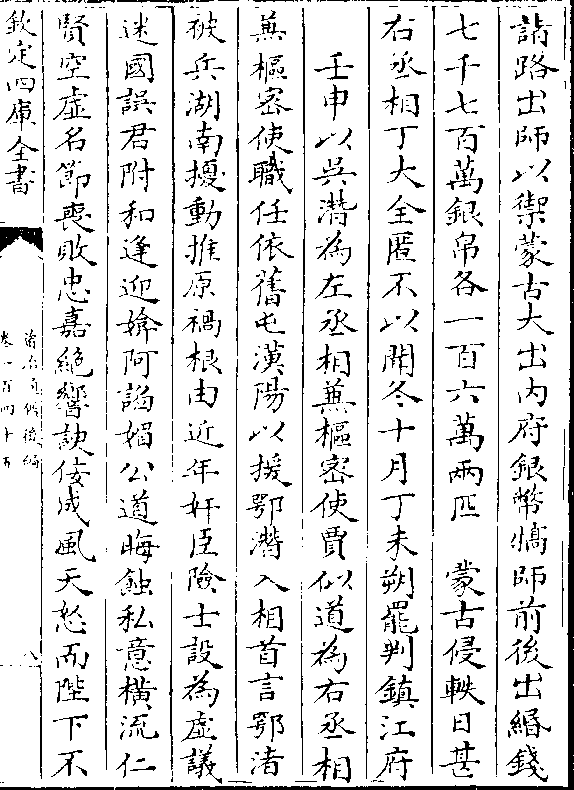 詣路出師以禦蒙古大出内府銀幣犒師前後出緡錢
七千七百萬銀帛各一百六萬兩匹　蒙古侵軼日甚
右丞相丁大全匿不以聞冬十月丁未朔罷判鎮江府
壬申以吳潛為左丞相兼樞密使賈似道為右丞相
兼樞密使職任依舊屯漢陽以援鄂潛入相首言鄂渚
被兵湖南擾動推原禍根由近年奸臣險士設為虛議
迷國誤君附和逢迎媕阿諂媚公道晦蝕私意橫流仁
賢空虛名節喪敗忠嘉絶響諛佞成風天怒而陛下不
欽定四庫全書
資治通鑑後編
卷一百四十五
八